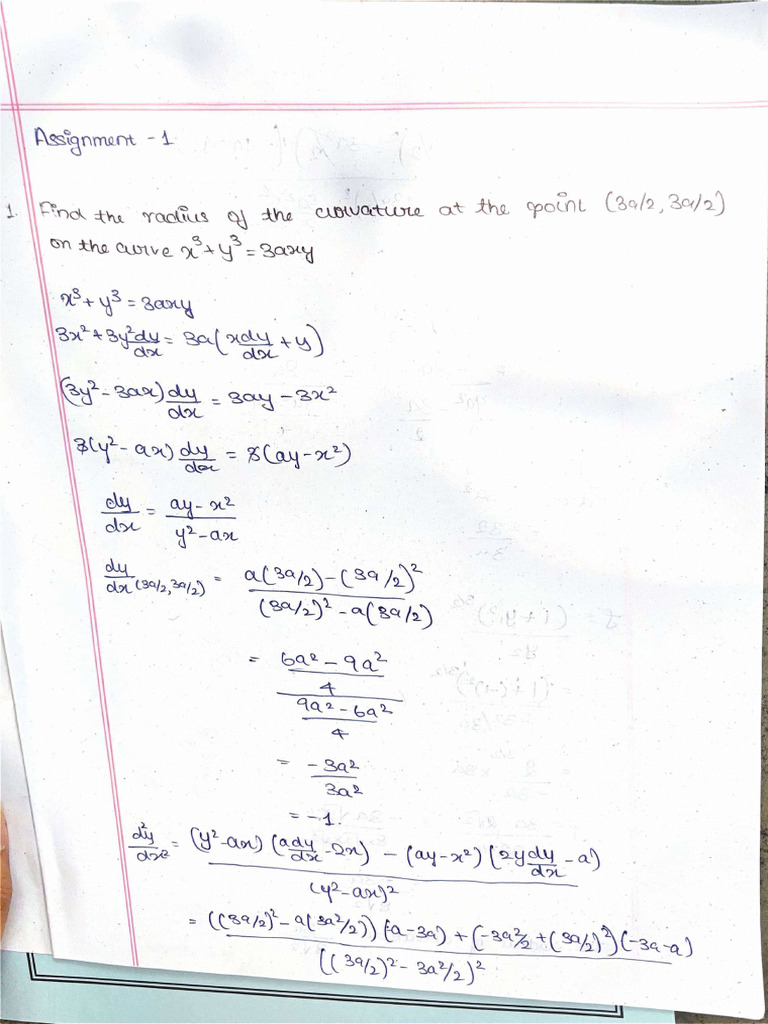 Assignment - 1
1. Find the radius of the curvature at the point (3a/2, 3a/2)
on the curve x³+y³=3axy
x³+y³=3axy
3x²+3y²dy/dx = 3a(xdy/dx+y)
(3y²-3ax)dy/dx = 3ay-3x²
3(y²-ax)dy/dx = 3(ay-x²)
dy/dx = ay-x²/y²-ax
dy/dx (3a/2,3a/2) = a(3a/2)-(3a/2)²/(3a/2)²-a(3a/2)
= 6a²-9a²/4/9a²-6a²/4
= -3a²/3a²
= -1.
d²y/dx² = (y²-ax)(ady/dx-2x) - (ay-x²)(2ydy/dx-a)/(y²-ax)²
= ((3a/2)²-a(3a²/2))(-a-3a)+(-3a²/2+(3a/2)²)(-3a-a)/((3a/2)²-3a²/2)²